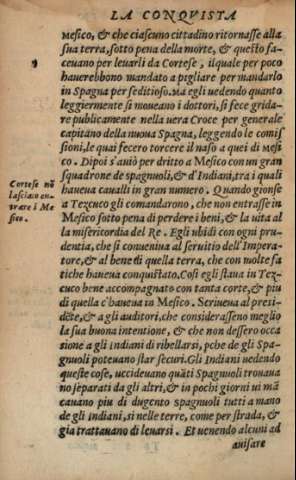 LA CONQVISTA
Mesico, & che ciascuno cittadino ritornasse alla
sua terra, sotto pena della morte, & questo fa-
ceuano per leuarli da Cortese, il quale per poco
hauerebbono mandato a pigliare per mandarlo
in Spagna per seditioso. Ma egli uedendo quanto
leggiermente si moueano i dottori, si fece grida-
re publicamente nella uera Croce per generale
capitano della nuoua Spagna, leggendo le comis
sioni, le quai fecero torcere il naso a quei di Mesi
co. Dipoi s'auiò per dritto a Mesico con un gran
squadrone de spagnuoli, & d'Indiani, tra i quali
haueua caualli in gran numero. Quando gionse
a Tezcuco gli comandarono, che non entrasse in
Mesico sotto pena di perdere i beni, & la uita al
la misericordia del Re. Egli ubidì con ogni pru-
dentia, che si conueniua al seruitio dell'Impera-
tore, & al bene di quella terra, che con molte fa
tiche haueua conquistato. Così egli staua in Tez-
cuco bene accompagnato con tanta corte, & piu
di quella c'haueua in Mesico. Scriueua al presi-
dēte, & a gli auditori, che considerasseno meglio
la sua buona intentione, & che non dessero occa
sione a gli Indiani di ribellarsi, pche de gli Spa-
gnuoli poteuano star securi. Gli Indiani uedendo
queste cose, uccideuano quāti Spagnuoli trouaua
no separati da gli altri, & in pochi giorni ui mā
cauano piu di dugento spagnuoli tutti a mano
de gli Indiani, sì nelle terre, come per strada, &
gia trattauano di leuarsi. Et uenendo alcuni ad
auisare
Cortese nō
lasciato en-
trare i Me
sico.